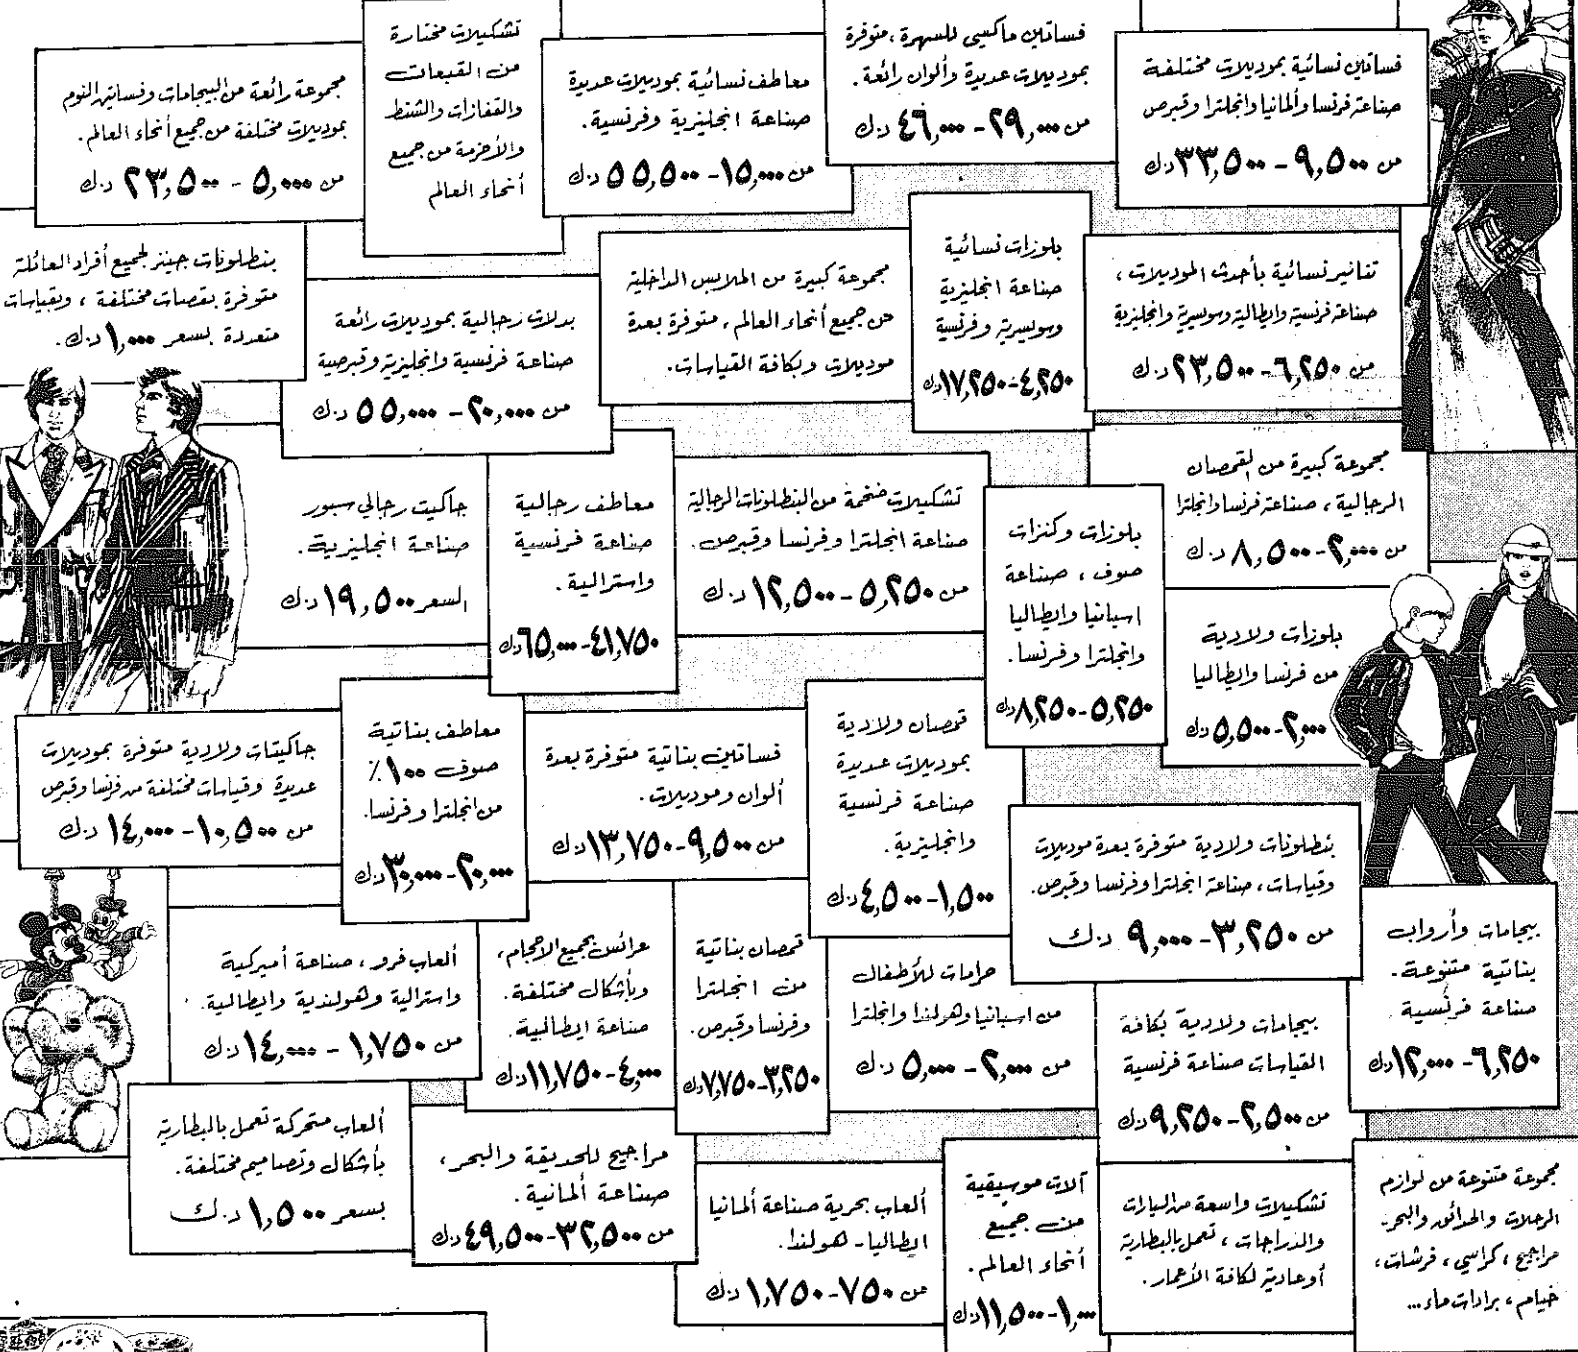 فساتين نسائية بموديلات مختلفة
صناعة فرنسا وألمانيا وانجلترا وقبرص
من ٩,٥٠٠ - ٣٣,٥٠٠ د.ك
فساتين ماكسي للسهرة، متوفرة
بموديلات عديدة وألوان رائعة.
من ٢٩,٠٠٠ - ٤٦,٠٠٠ د.ك
معاطف نسائية بموديلات عديدة
صناعة انجليزية وفرنسية.
من ١٥,٠٠٠ - ٥٥,٥٠٠ د.ك
تشكيلات مختارة
من القبعات
والقفازات والشنط
والأحزمة من جميع
أنحاء العالم
مجموعة رائعة من البيجامات وفساتين النوم
بموديلات مختلفة من جميع أنحاء العالم.
من ٥,٠٠٠ - ٢٣,٥٠٠ د.ك
تنانير نسائية بأحدث الموديلات،
صناعة فرنسية وايطالية وسويسرية وانجليزية
من ٦,٢٥٠ - ٢٣,٥٠٠ د.ك
بلوزات نسائية
صناعة انجليزية
وسويسرية وفرنسية
٤,٢٥٠ - ١٧,٢٥٠ د.ك
مجموعة كبيرة من الملابس الداخلية
من جميع أنحاء العالم، متوفرة بعدة
موديلات وبكافة القياسات.
بدلات رجالية بموديلات رائعة
صناعة فرنسية وانجليزية وقبرصية
من ٢٠,٠٠٠ - ٥٥,٠٠٠ د.ك
بنطلونات جينز لجميع أفراد العائلة
متوفرة بقصات مختلفة، وبقياسات
متعددة بسعر ١,٠٠٠ د.ك.
مجموعة كبيرة من القمصان
الرجالية، صناعة فرنسا وانجلترا
من ٢,٠٠٠ - ٨,٥٠٠ د.ك
بلوزات وكنزات
صوف، صناعة
اسبانيا وايطاليا
وانجلترا وفرنسا.
٥,٢٥٠ - ٨,٢٥٠ د.ك
تشكيلات ضخمة من البنطلونات الرجالية
صناعة انجلترا وفرنسا وقبرص.
من ٥,٢٥٠ - ١٢,٥٠٠ د.ك
معاطف رجالية
صناعة فرنسية
واسترالية.
٤١,٧٥٠ - ٦٥,٠٠٠ د.ك
جاكيت رجالي سبور
صناعة انجليزية.
السعر ١٩,٥٠٠ د.ك
بلوزات ولادية
من فرنسا وايطاليا
٢,٠٠٠ - ٥,٥٠٠ د.ك
قمصان ولادية
بموديلات عديدة
صناعة فرنسية
وانجليزية.
١,٥٠٠ - ٤,٥٠٠ د.ك
فساتين بناتية متوفرة بعدة
ألوان وموديلات.
من ٩,٥٠٠ - ١٣,٧٥٠ د.ك
معاطف بناتية
صوف ١٠٠٪
من انجلترا وفرنسا.
٢٠,٠٠٠ - ٣٠,٠٠٠ د.ك
جاكيتات ولادية متوفرة بموديلات
عديدة وقياسات مختلفة من فرنسا وقبرص
من ١٠,٥٠٠ - ١٤,٠٠٠ د.ك
بنطلونات ولادية متوفرة بعدة موديلات
وقياسات، صناعة انجلترا وفرنسا وقبرص.
من ٣,٢٥٠ - ٩,٠٠٠ د.ك
بيجامات وأرواب
بناتية متنوعة.
صناعة فرنسية
٦,٢٥٠ - ١٢,٠٠٠ د.ك
بيجامات ولادية بكافة
القياسات صناعة فرنسية
من ٢,٥٠٠ - ٩,٢٥٠ د.ك
حرامات للأطفال
من اسبانيا وهولندا وانجلترا
من ٢,٠٠٠ - ٥,٠٠٠ د.ك
قمصان بناتية
من انجلترا
وفرنسا وقبرص.
٣,٢٥٠ - ٧,٧٥٠ د.ك
عرائس بجميع الاحجام،
وبأشكال مختلفة.
صناعة ايطالية.
٤,٠٠٠ - ١١,٧٥٠ د.ك
ألعاب فرو، صناعة أميركية
واسترالية وهولندية وايطالية.
من ١,٧٥٠ - ١٤,٠٠٠ د.ك
ألعاب متحركة تعمل بالبطارية
بأشكال وتصاميم مختلفة.
بسعر ١,٥٠٠ د.ك
مراجيح للحديقة والبحر،
صناعة ألمانية.
من ٣٢,٥٠٠ - ٤٩,٥٠٠ د.ك
ألعاب بحرية صناعة ألمانيا
ايطاليا - هولندا.
من ٧٥٠ - ١,٧٥٠ د.ك
آلات موسيقية
من جميع
أنحاء العالم.
١,٠٠٠ - ١١,٥٠٠ د.ك
تشكيلات واسعة من السيارات
والدراجات، تعمل بالبطارية
أو عادية لكافة الأعمار.
مجموعة متنوعة من لوازم
الرحلات والحدائق والبحر.
مراجيح، كراسي، فرشات،
خيام، برادات ماء...